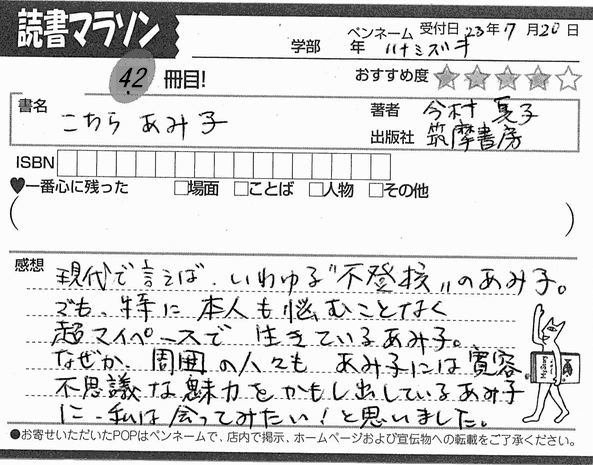 読書マラソン
学部 年 ペンネーム ハナミズキ 受付日 23年7月20日
42冊目!
おすすめ度 ★★★★☆
書名 こちら あみ子
著者 今村 夏子
出版社 筑摩書房
ISBN
♥一番心に残った □場面 □ことば □人物 □その他
( )
感想
現代で言えば、いわゆる"不登校"のあみ子。
でも、特に本人も悩むことなく
超マイペースで 生きているあみ子。
なぜか、周囲の人々も あみ子には寛容
不思議な魅力をかもし出しているあみ子
に、私は会ってみたい!と思いました。
●お寄せいただいたPOPはペンネームで、店内で掲示、ホームページおよび宣伝物への転載をご了承ください。